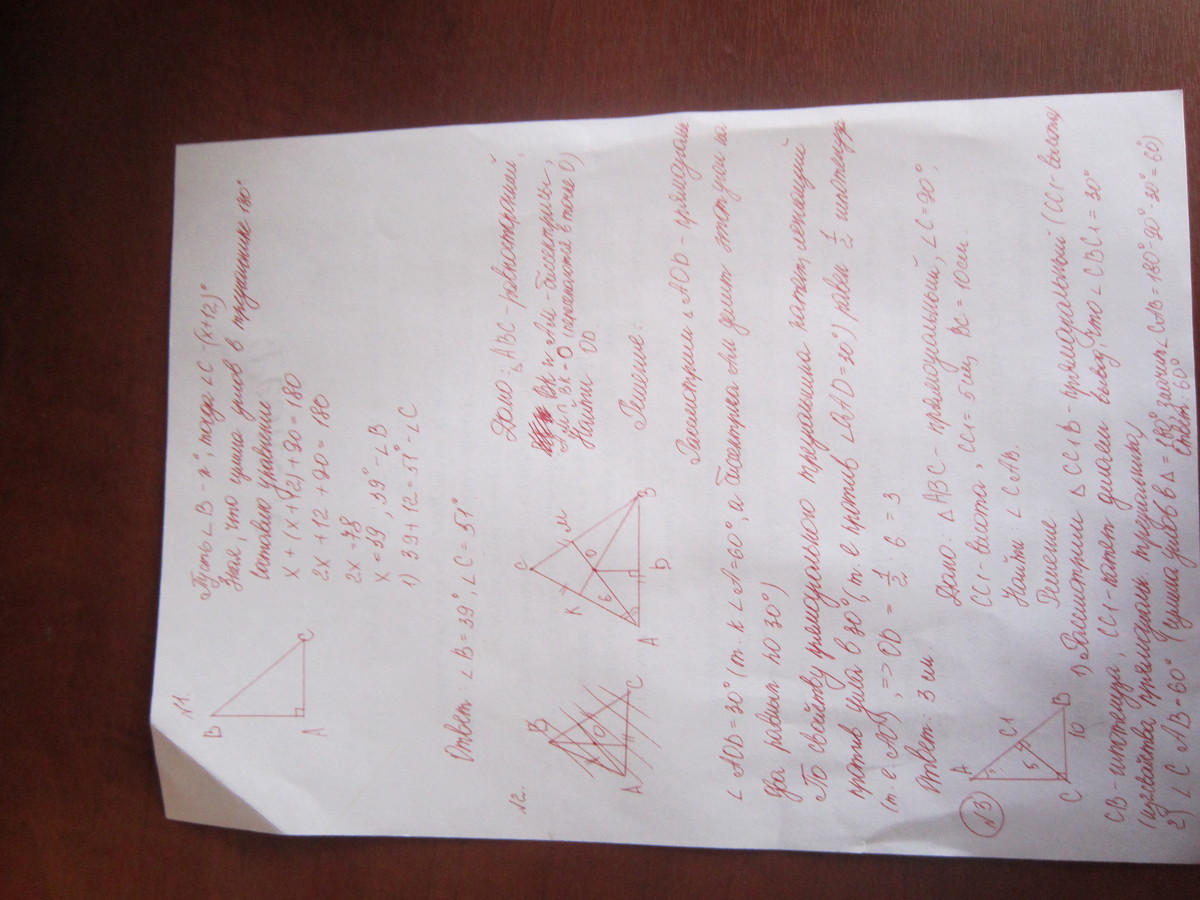 №1.
B
A
C
Пусть ∠B - x°, тогда ∠C - (x+12)°
Зная, что сумма углов в треугольнике 180°
составлю уравнение
x + (x+12) + 90 = 180
2x + 12 + 90 = 180
2x = 78
x = 39, 39° - ∠B
1) 39 + 12 = 51° - ∠C
Ответ: ∠B = 39°, ∠C = 51°
№2.
A
B
C
K
O
C
K
M
6
O
A
D
B
Дано: △ABC - равносторонний,
BK и AM - биссектрисы,
AM ∩ BK = O (пересекаются в точке O)
Найти: OD
Решение:
Рассмотрим △AOD - прямоугол
∠AOD = 30° (т. к ∠A = 60°, а биссектриса AM делит этот угол на
два равных по 30°)
По свойству прямоугольного треугольника катет, лежащий
против угла в 30° (т. е против ∠OAD = 30°) равен 1/2 гипотенузе
(т. е AO), => OD = 1/2 · 6 = 3
Ответ: 3 см.
№3
A
C1
5
C
10
B
Дано: △ABC - прямоугольный, ∠C = 90°,
CC1 - высота, CC1 = 5 см, BC = 10 см.
Найти ∠CAB
Решение
1) Рассмотрим △CC1B - прямоугольный (CC1 - высота)
CB - гипотенуза, CC1 - катет делаем вывод, что ∠CBC1 = 30°
(из свойства прямоугольн треугольника)
2) ∠CAB = 60° (сумма углов в △ = 180°, значит ∠CAB = 180° - 90° - 30° = 60°)
Ответ: 60°